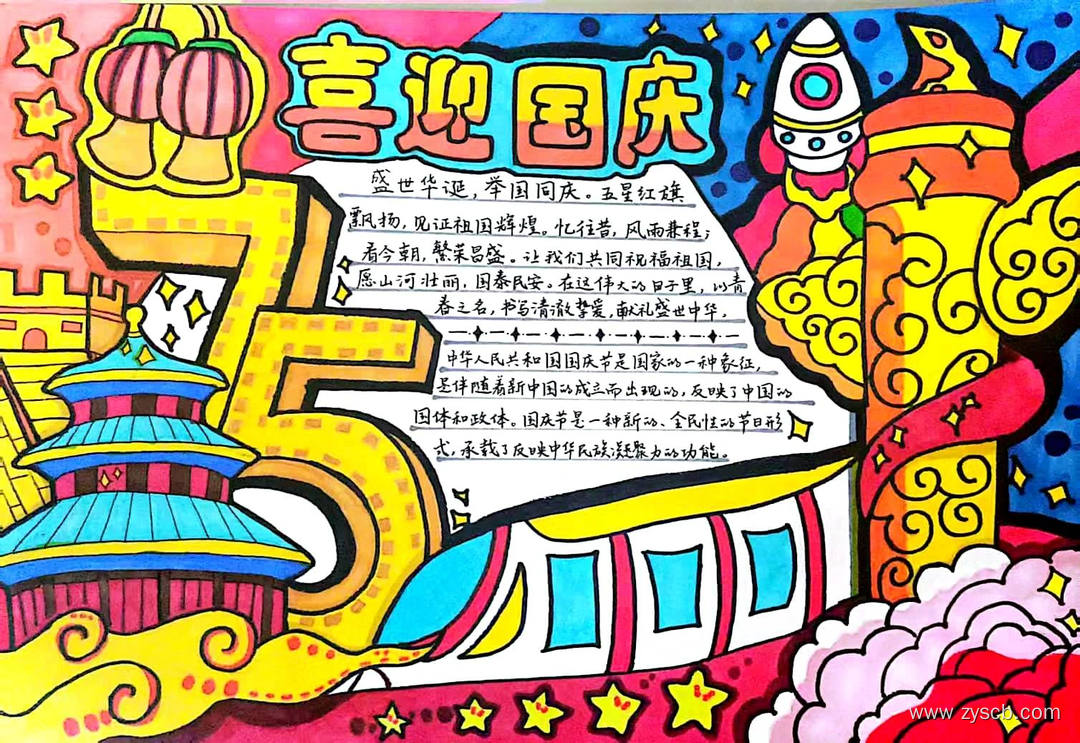 喜迎国庆
盛世华诞，举国同庆。五星红旗
飘扬，见证祖国辉煌。忆往昔，风雨兼程；
看今朝，繁荣昌盛。让我们共同祝福祖国，
愿山河壮丽，国泰民安。在这伟大的日子里，以青
春之名，书写清澈挚爱，献礼盛世中华。
中华人民共和国国庆节是国家的一种象征，
是伴随着新中国的成立而出现的，反映了中国的
国体和政体。国庆节是一种新的、全民性的节日形
式，承载了反映中华民族凝聚力的功能。
75
www.zyscb.com